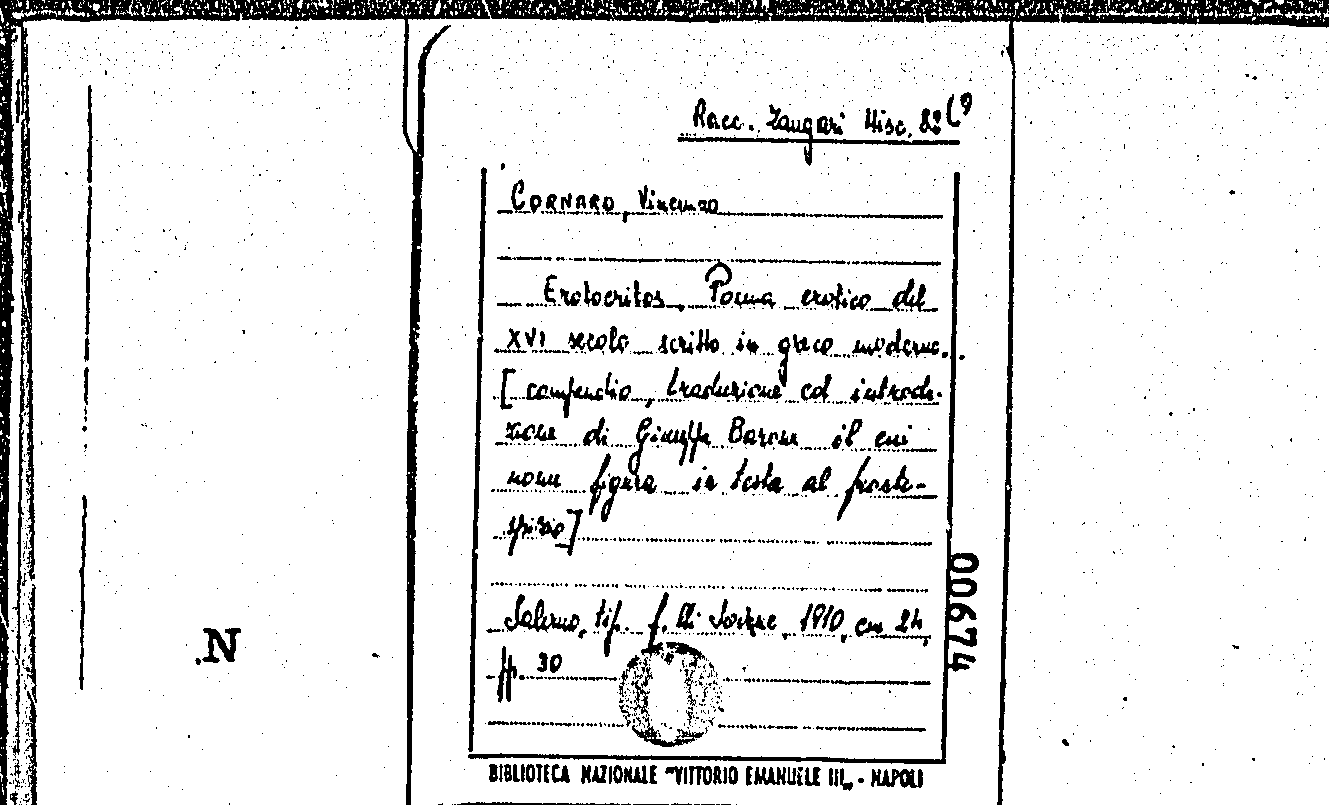 Racc. Zangari Misc. 82 (9
CORNARO, Vincenzo
Erotocritos. Poema erotico del
XVI secolo scritto in greco moderno.
[compendio, traduzione ed introdu-
zione di Giuseppe Barone il cui
nome figura in testa al fronte-
spizio]
Salerno, tip. f.lli Jovane, 1910, cm 24,
pp. 30
00674
.N
BIBLIOTECA NAZIONALE "VITTORIO EMANUELE III„ - NAPOLI